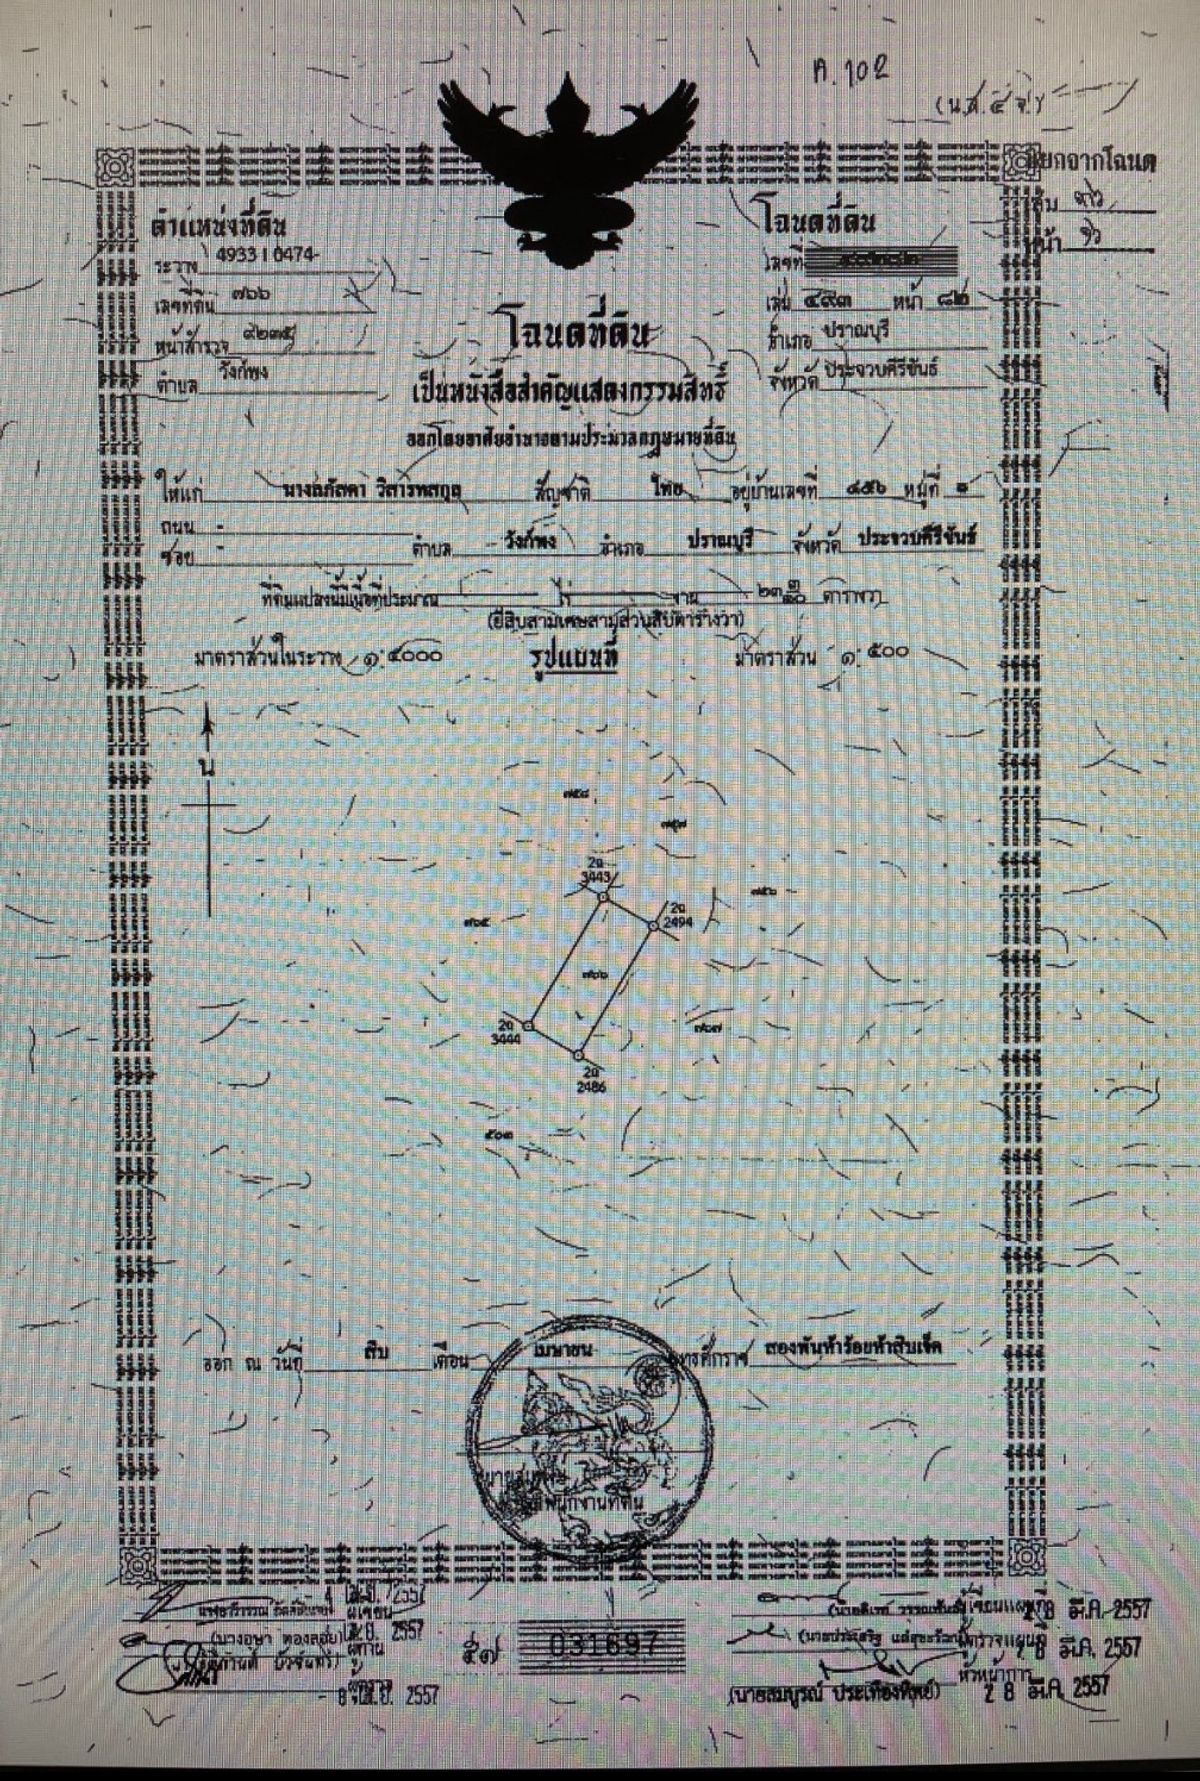 ค.102
(น.ส.๔ จ.)
แยกจากโฉนด
เล่ม ๓๖
หน้า ๖
ตำแหน่งที่ดิน
ระวาง 4933 I 0474-
เลขที่ดิน ๗๖๖
หน้าสำรวจ ๔๒๓๕
ตำบล วังก์พง
โฉนดที่ดิน
เลขที่
เล่ม ๔๙๓ หน้า ๘๒
อำเภอ ปราณบุรี
จังหวัด ประจวบคีรีขันธ์
โฉนดที่ดิน
เป็นหนังสือสำคัญแสดงกรรมสิทธิ์
ออกโดยอาศัยอำนาจตามประมวลกฎหมายที่ดิน
ให้แก่ นางลภัสดา วิสารทสกุล สัญชาติ ไทย อยู่บ้านเลขที่ ๔๕๖ หมู่ที่ ๑
ถนน -
ซอย - ตำบล วังก์พง อำเภอ ปราณบุรี จังหวัด ประจวบคีรีขันธ์
ที่ดินแปลงนี้มีเนื้อที่ประมาณ - ไร่ - งาน ๒๓ ๓/๑๐ ตารางวา
(ยี่สิบสามเศษสามส่วนสิบตารางวา)
มาตราส่วนในระวาง ๑:๔๐๐๐ รูปแผนที่ มาตราส่วน ๑:๕๐๐
น
๗๕๘
๗๕๗
2ถ
3443
๗๕๖
๗๖๕
2ถ
2494
๗๖๖
2ถ
3444
๗๖๗
2ถ
2486
๕๐๓
ออก ณ วันที่ สิบ เดือน เมษายน พุทธศักราช สองพันห้าร้อยห้าสิบเจ็ด
เจ้าพนักงานที่ดิน
เม.ย. 2557
ผู้เขียน
(นางอุษา ทองลอย) เม.ย. 2557
ผู้ทาน
ผู้ตรวจ
- 8 เม.ย. 2557
๕๗ 031697
ผู้เขียนแผนที่
2 8 มี.ค. 2557
ผู้ตรวจแผนที่
2 8 มี.ค. 2557
(นายสมบูรณ์ ประเทืองทิพย์) หัวหน้าการ
2 8 มี.ค. 2557